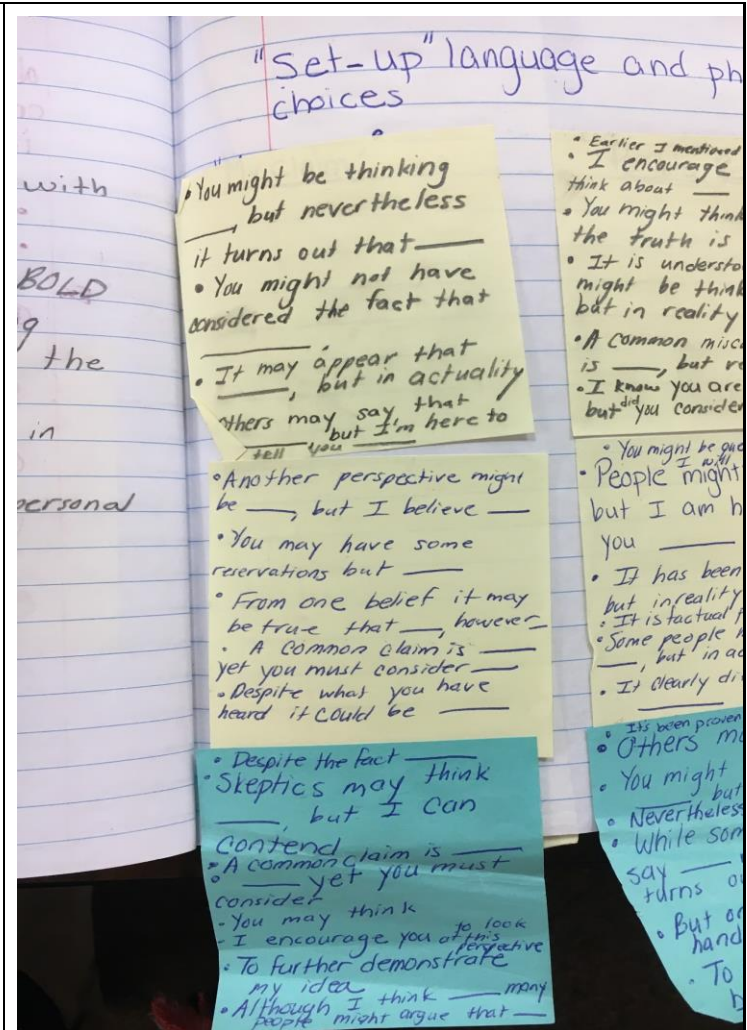 with
BOLD
g
the
in
personal
"Set-up" language and ph
choices
• You might be thinking
____, but nevertheless
it turns out that ____
• You might not have
considered the fact that
____.
• It may appear that
____, but in actuality
others may say that
but I'm here to
tell you ____
• Another perspective might
be ___, but I believe ___
• You may have some
reservations but ____
• From one belief it may
be true that ___, however_
• A common claim is ____
yet you must consider ____
• Despite what you have
heard it could be ____
• Despite the fact ____
• Skeptics may think
____, but I can
contend
• A common claim is ____
• ____ yet you must
consider
- You may think
- I encourage you to look
at this
perspective
• To further demonstrate
my idea
• Although I think ____ many
people might argue that ___
• Earlier I mentioned
• I encourage
think about ___
• You might think
the truth is
• It is understo
might be think
but in reality
• A common misc
is ___, but re
• I know you are
but did you consider
• You might be que
I will
• People might
but I am h
you ____
• It has been
but in reality
• It is factual t
• Some people
___, but in ac
• It clearly di
____
• It's been proven
• Others m
• You might
but
• Nevertheless
• While som
say ___
turns o
• But on
hand
• To
b